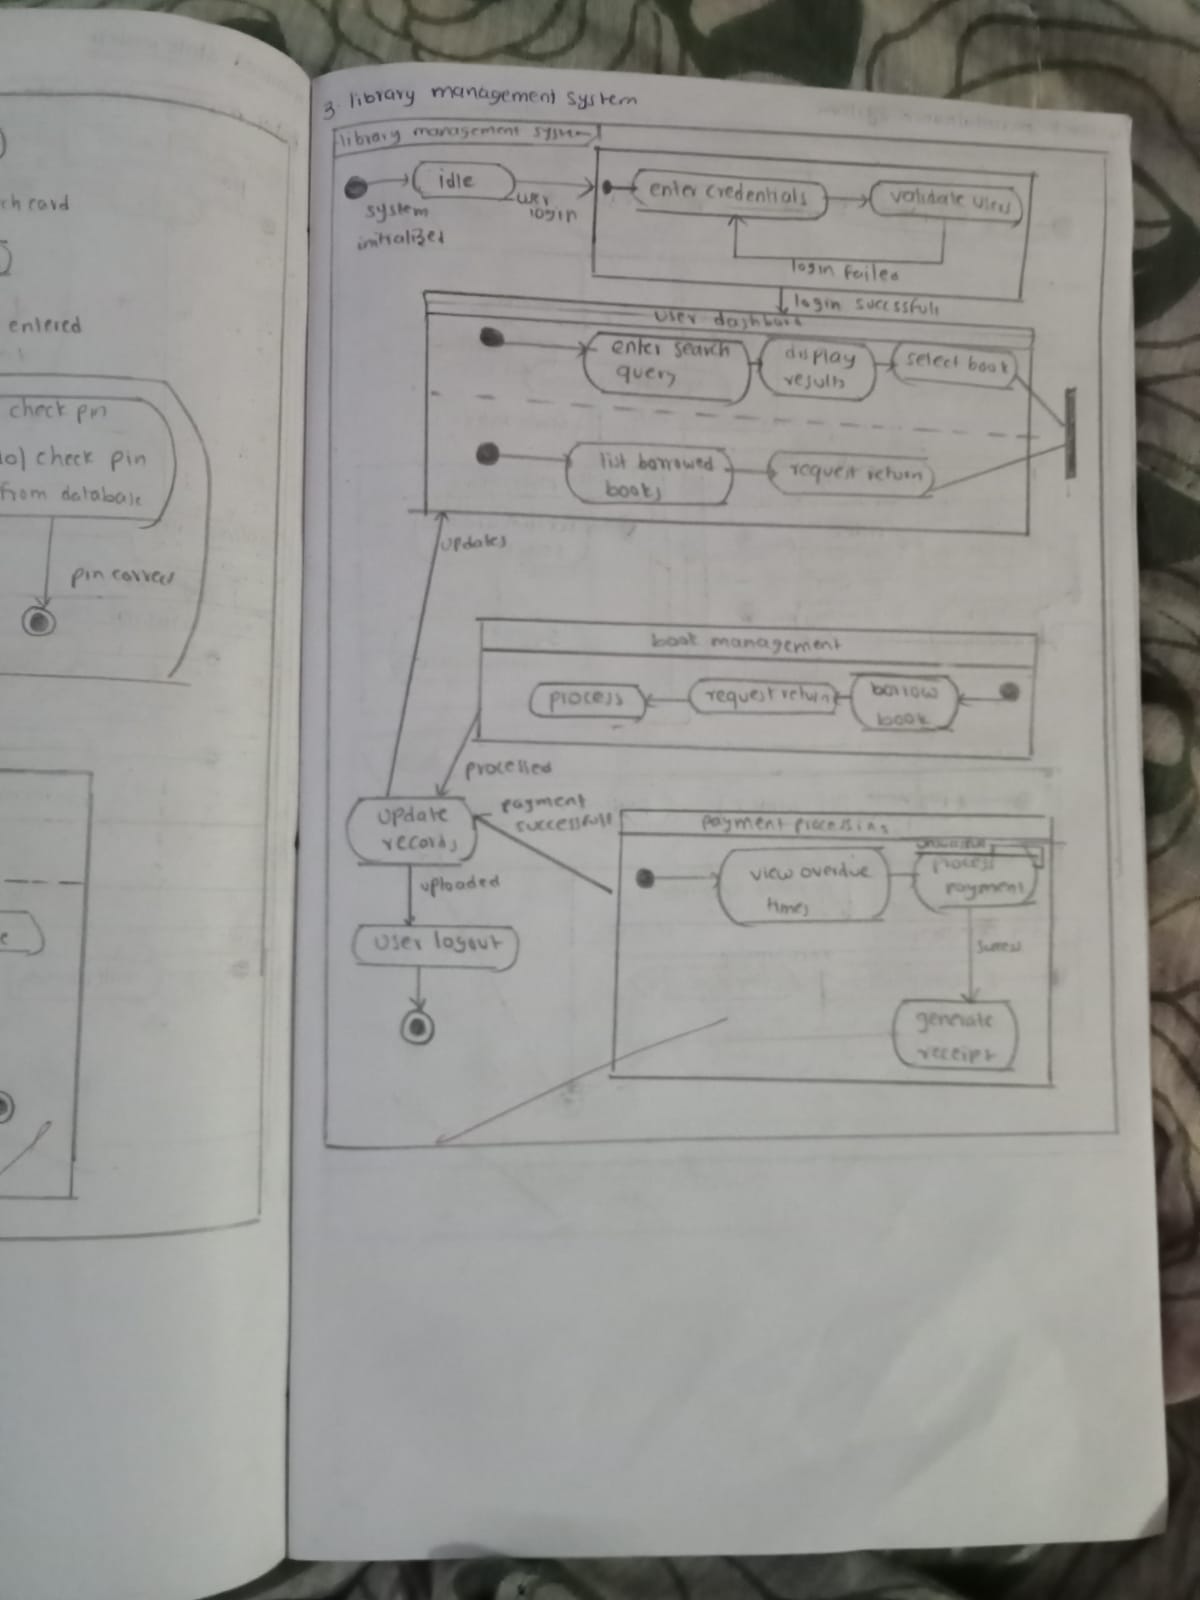 ch card
entered
check pin
do/ check pin
from database
pin correct
3. library management system
library management system
idle
system
initialized
user
login
enter credentials
validate users
login failed
login successfull
user dashbord
enter search
query
display
results
select book
list borrowed
books
request return
updates
book management
process
request return
borrow
book
processed
update
records
payment
successfull
payment processing
view overdue
times
process
payment
success
uploaded
user logout
generate
receipt